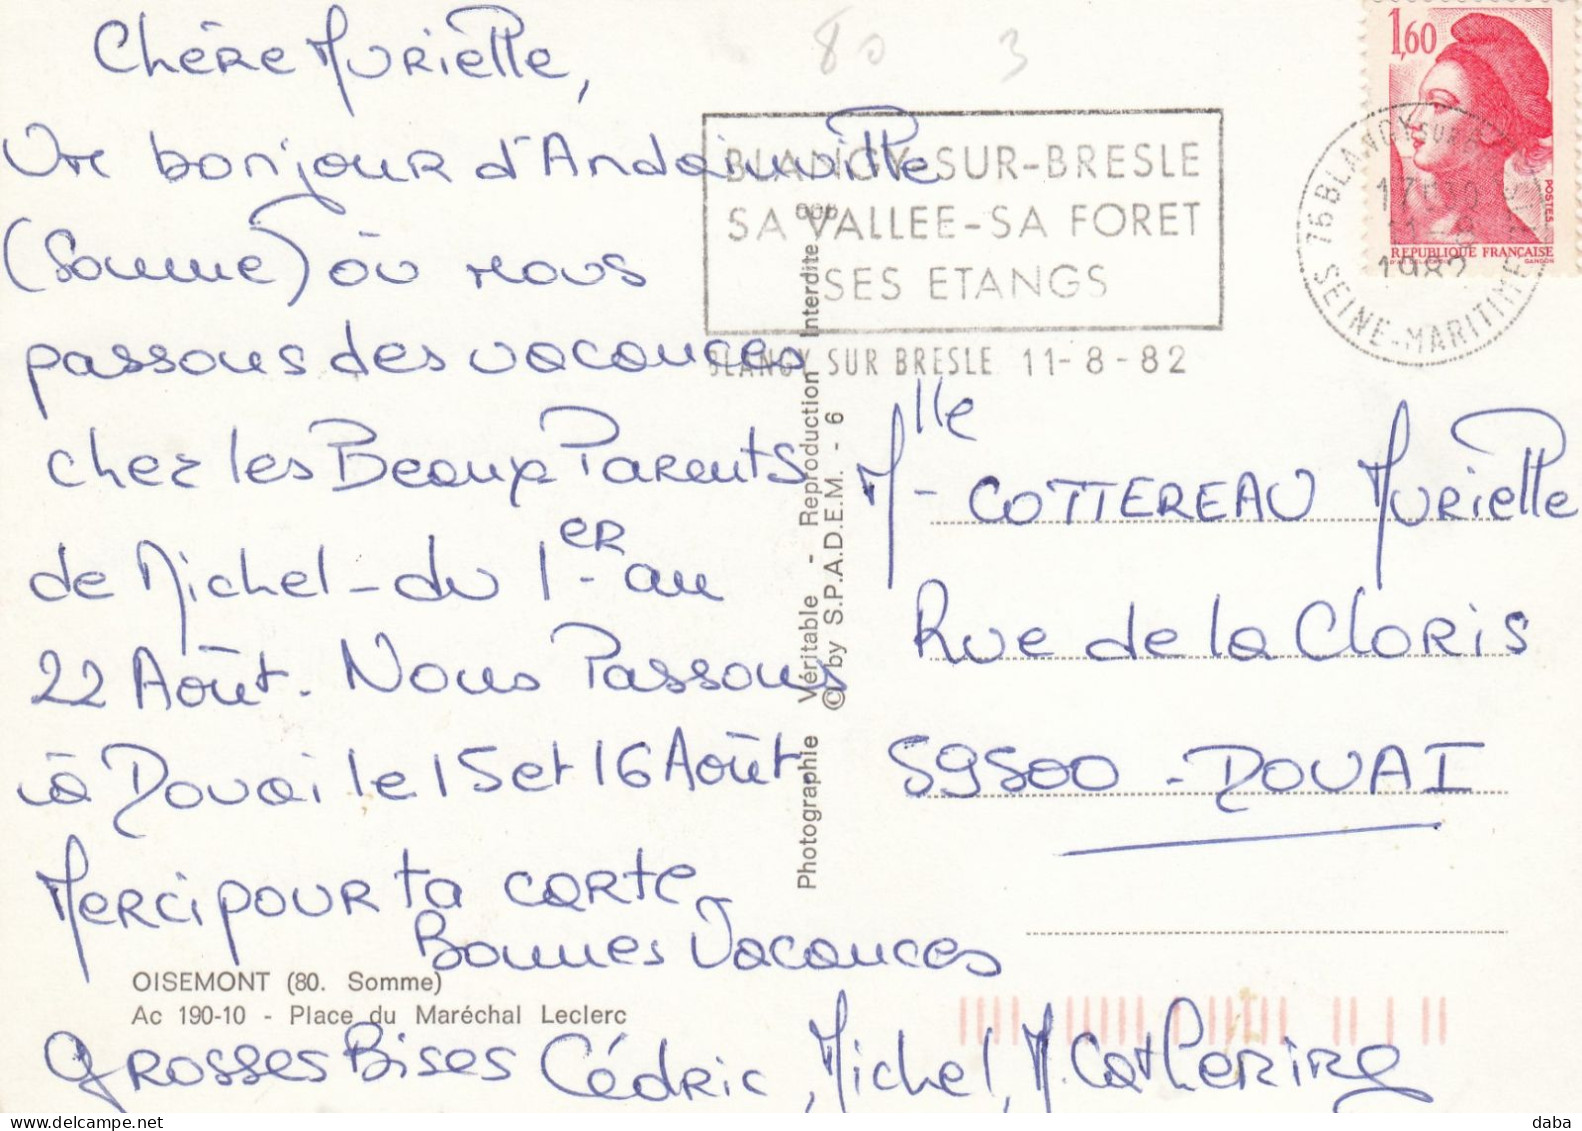 Chère Murielle,
Un bonjour d'Andainville
(Somme) où nous
passons des vacances
chez les Beaux Parents
de Michel - du 1er au
22 Août. Nous Passons
à Douai le 15 et 16 Août
Merci pour ta carte
Bonnes Vacances
Grosses Bises Cédric, Michel, M. Catherine
OISEMONT (80. Somme)
Ac 190-10 - Place du Maréchal Leclerc
Photographie Véritable - Reproduction Interdite
© by S.P.A.D.E.M. - 6
80 3
BLANGY-SUR-BRESLE
SA VALLEE-SA FORET
SES ETANGS
BLANGY SUR BRESLE 11-8-82
1,60
POSTES
REPUBLIQUE FRANÇAISE
GANDON
76 BLANGY SUR
1982
SEINE-MARITIME
Mlle - COTTEREAU Murielle
Rue de la Cloris
59500 - DOUAI
daba